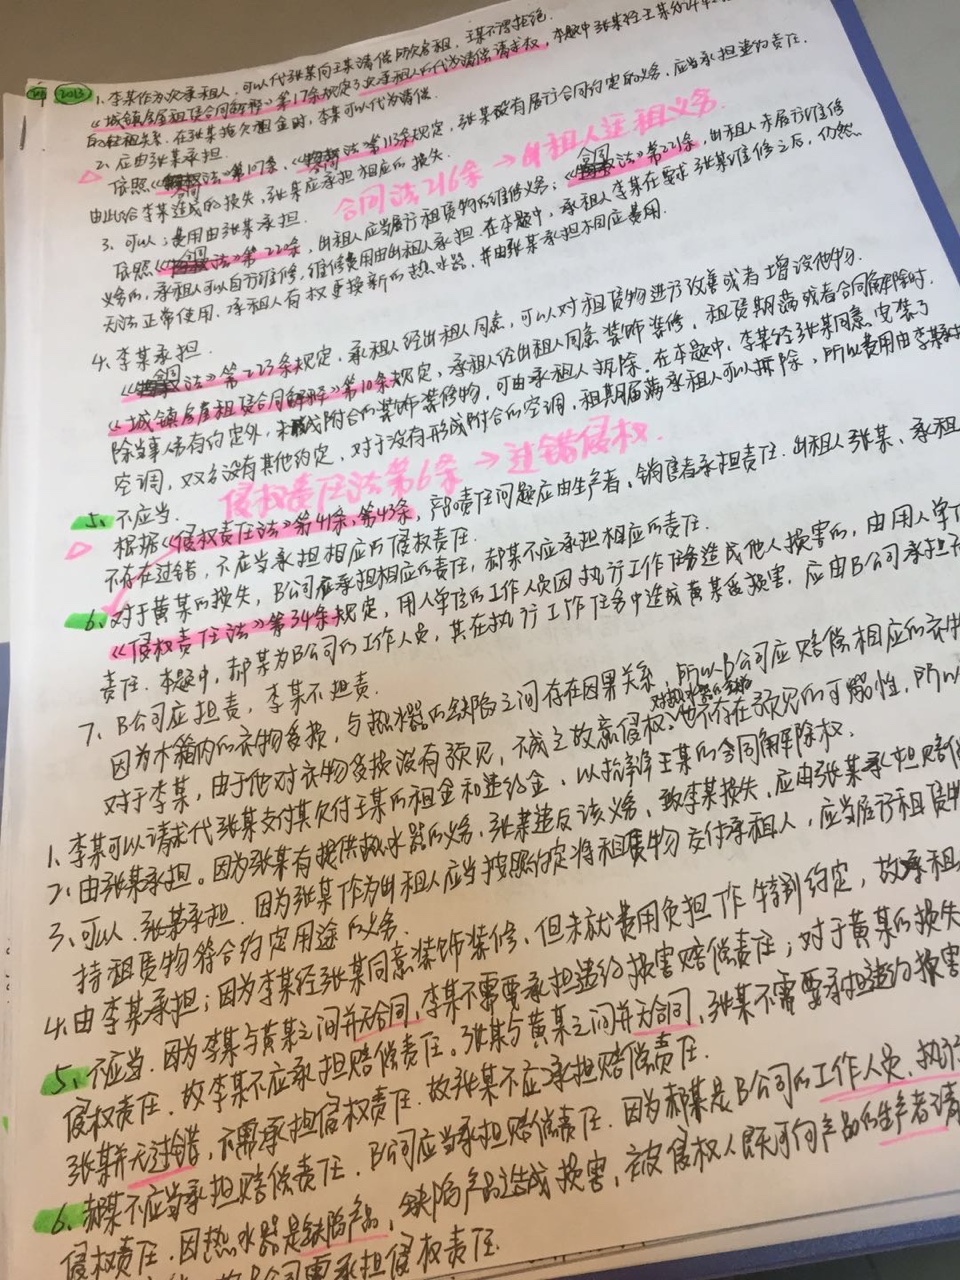 四 2013 1、李某作为次承租人,可以代张某向王某请偿所欠房租,王某不得拒绝。
《城镇房屋租赁合同解释》第17条规定了次承租人的代为清偿请求权,本题中张某经王某
的转租关系,在张某拖欠租金时,李某可以代为清偿。
2、应由张某承担。
依照《合同法》第107条、《合同法》第113条规定,张某没有履行合同约定的义务,应当承担违约责任.
由此给李某造成的损失,张某应承担相应的损失.
合同法216条→出租人适租义务
3、可以;费用由张某承担.
依照《合同法》第220条,出租人应当履行租赁物的维修义务;《合同法》第221条,出租人未履行维修
义务的,承租人可以自行维修,维修费用由出租人承担.在本题中,承租人李某在要求张某维修之后,仍然
无法正常使用.承租人有权更换新的热水器,并由张某承担相应费用.
4、李某承担.
《合同法》第223条规定,承租人经出租人同意,可以对租赁物进行改善或者增设他物.
《城镇房屋租赁合同解释》第10条规定,承租人经出租人同意装饰装修,租赁期满或者合同解除时.
除当事人另有约定外,未形成附合的装饰装修物,可由承租人拆除.在本题中,李某经张某同意安装了
空调,双方没有其他约定,对于没有形成附合的空调,租期届满承租人可以拆除,所以费用由李某承担
侵权责任法第6条→过错侵权.
5、不应当.
根据《侵权责任法》第41条、第43条,产品责任问题应由生产者、销售者承担责任.出租人张某、承租
不存在过错,不应当承担相应的侵权责任.
6、对于黄某的损失,B公司应承担相应的责任,郝某不应承担相应的责任.
《侵权责任法》第34条规定,用人单位的工作人员因执行工作任务造成他人损害的,由用人单位
责任.本题中,郝某为B公司的工作人员,其在执行工作任务中造成黄某受损害.应由B公司承担
7、B公司应担责,李某不担责.
因为木箱内的衣物受损,与热水器的缺陷之间存在因果关系,所以B公司应赔偿相应的衣物
对于李某,由于他对衣物受损没有预见,不成立故意侵权,他不存在预见的可能性,所以
1、李某可以请求代张某支付其欠付王某的租金和违约金,以抗辩王某的合同解除权.
2、由张某承担。因为张某有提供热水器的义务.张某违反该义务,致李某损失,应由张某承担赔偿
3、可以.张某承担.因为张某作为出租人应当按照约定将租赁物交付承租人,应当履行租赁物
持租赁物符合约定用途的义务.
4、由李某承担;因为李某经张某同意装饰装修,但未就费用负担作特别约定,故承租
5、不应当.因为李某与黄某之间并无合同,李某不需要承担违约损害赔偿责任;对于黄某的损失
侵权责任.故李某不应承担赔偿责任.张某与黄某之间并无合同,张某不需要承担违约损害
张某并无过错,不需承担侵权责任.故张某不应承担赔偿责任.
6、郝某不应当承担赔偿责任.B公司应当承担赔偿责任.因为郝某是B公司的工作人员,执行
侵权责任.因热水器是缺陷产品,缺陷产品造成损害,被侵权人既可向产品的生产者请
公司需承担侵权责任.